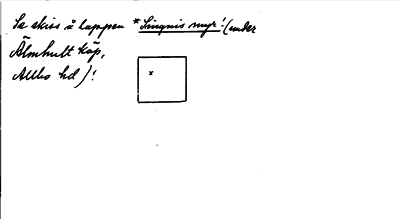 Se skiss å lappen * Singnis myr! (under
Älmhult köp,
Allbo hd)!
x